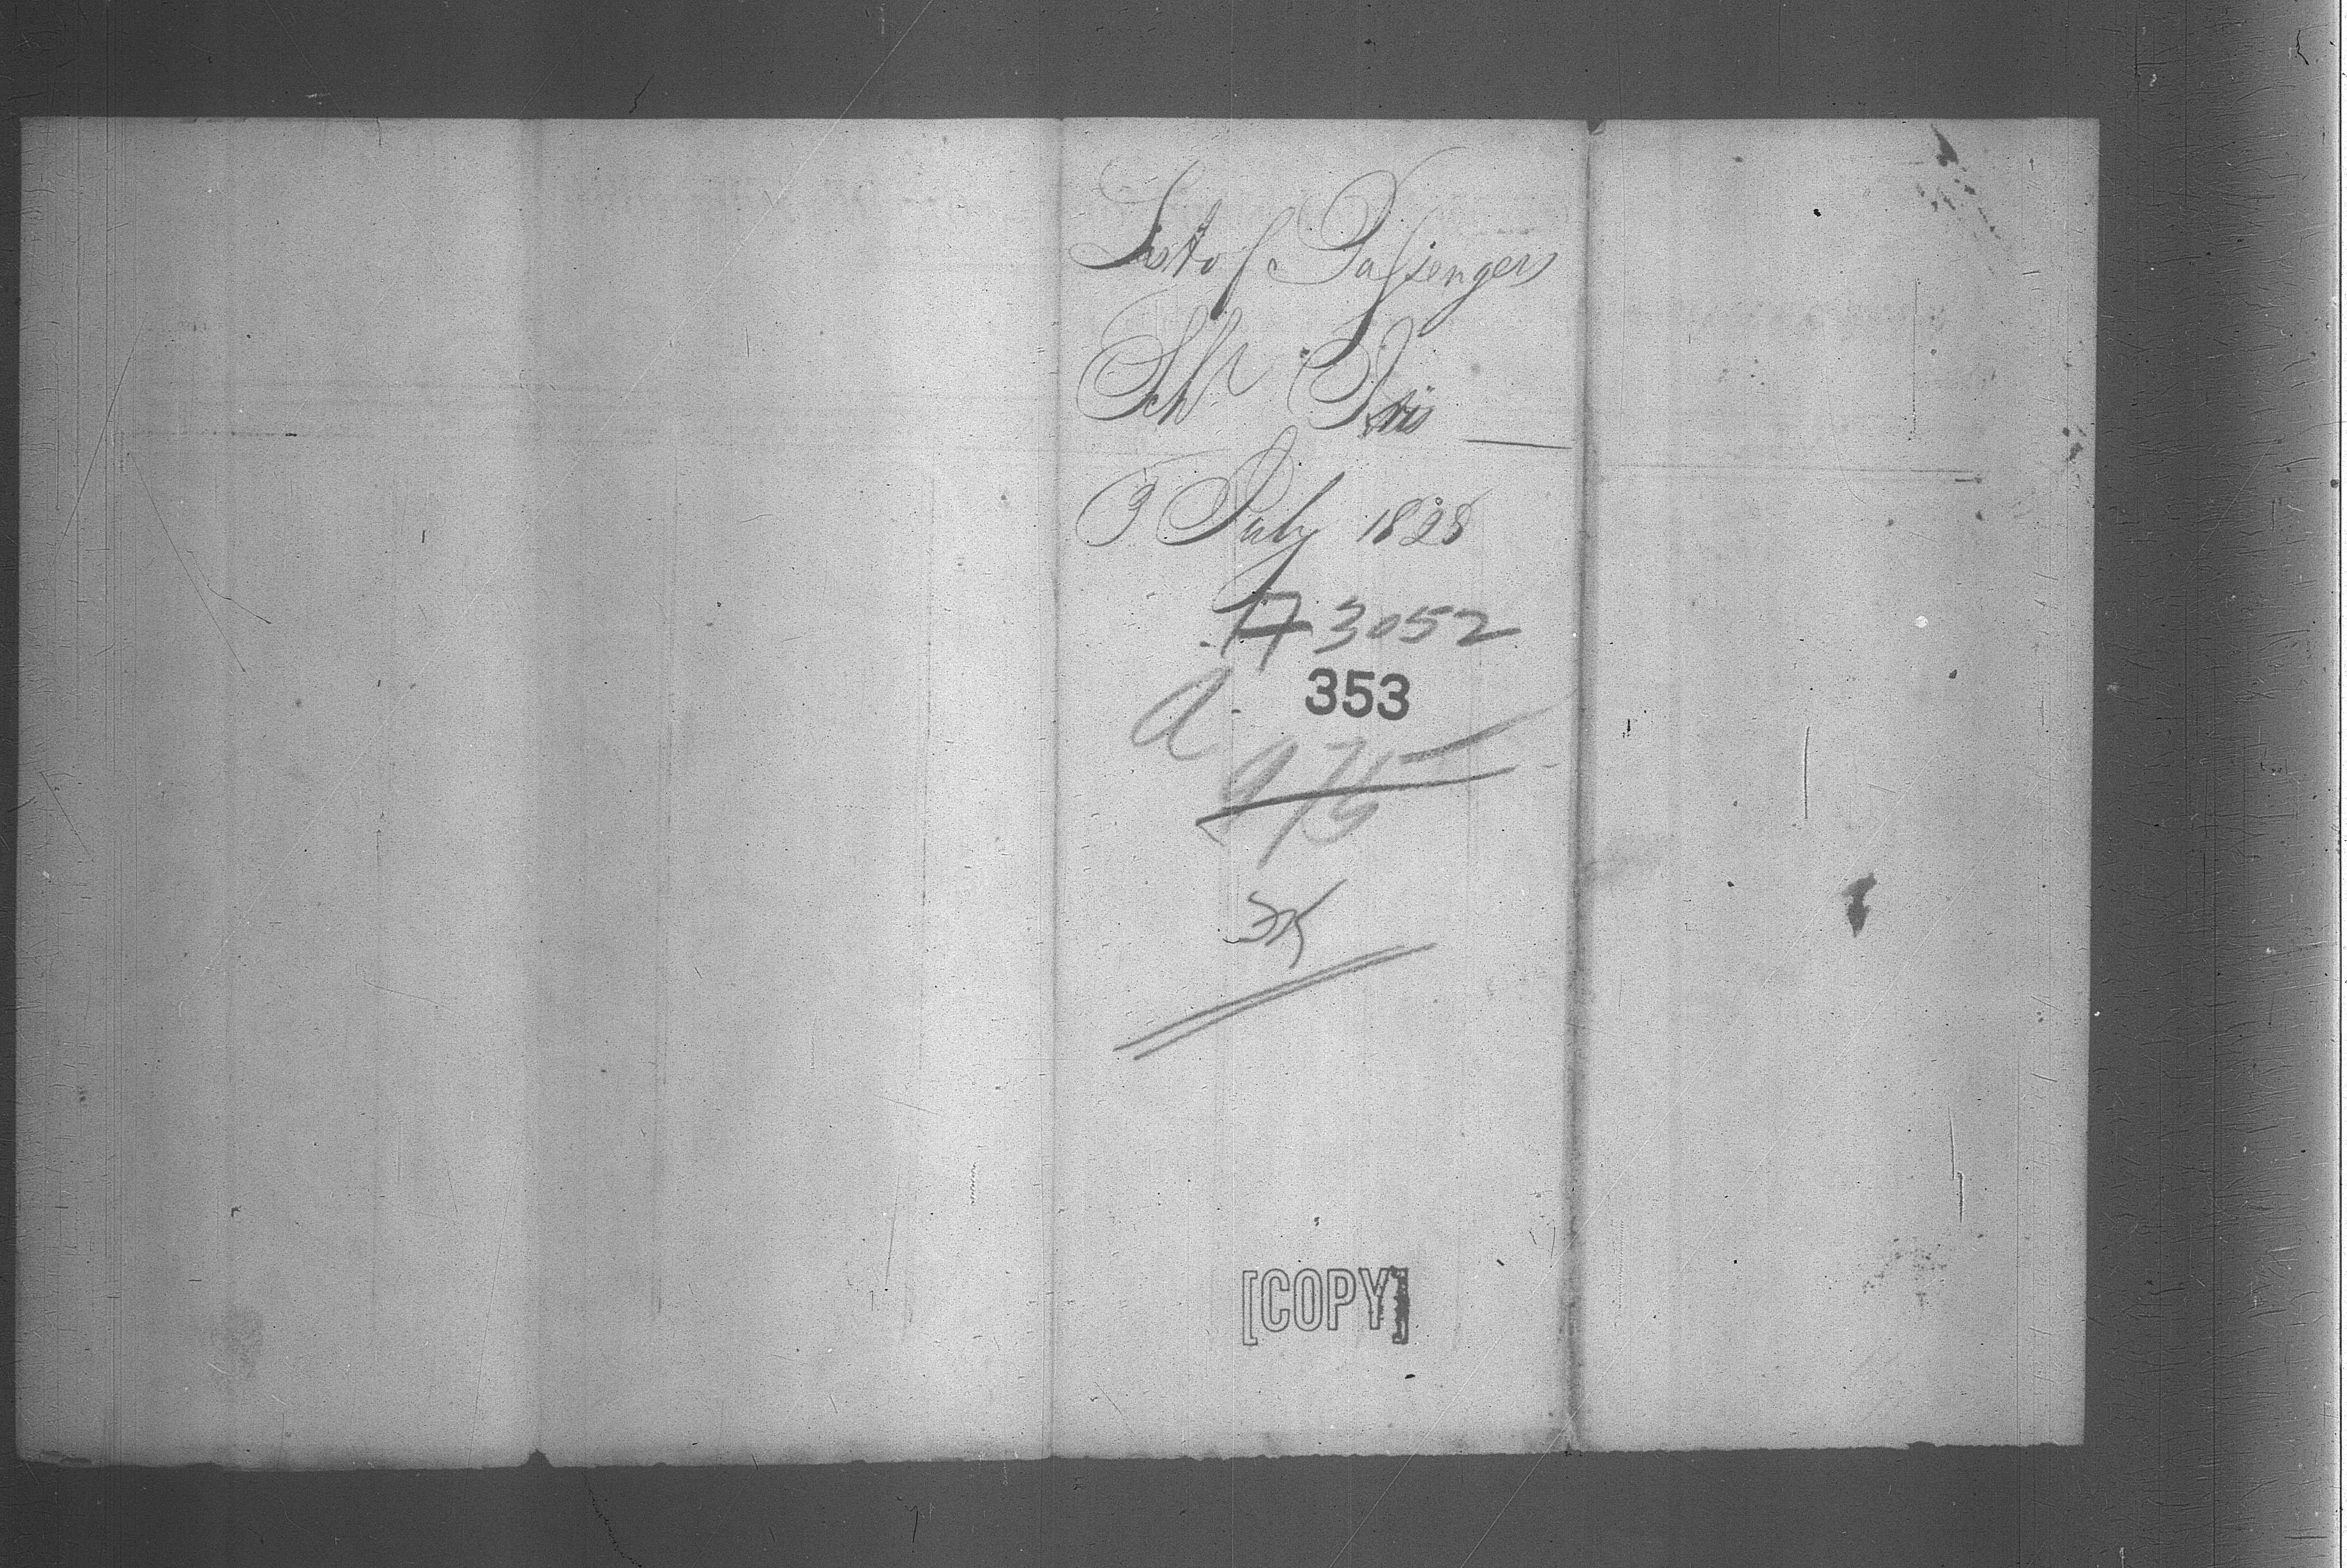 List of Passengers
Schr Iris
3 July 1828
3052
353
a
975
[COPY]